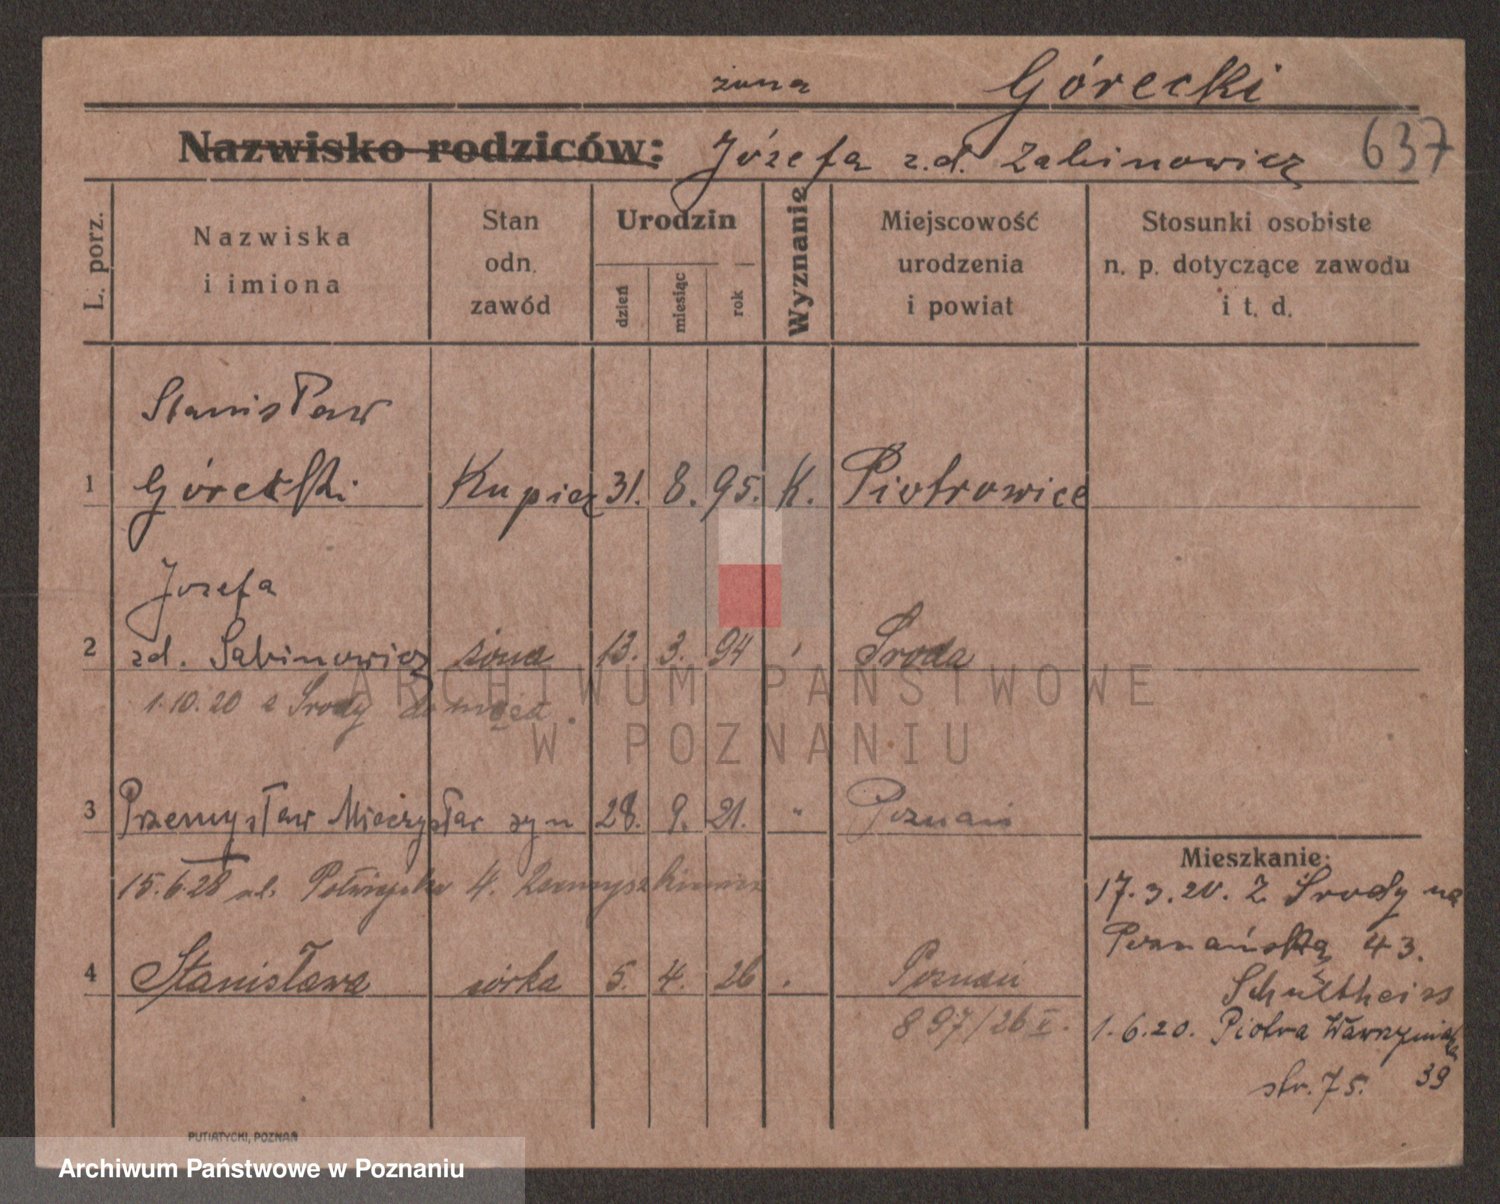 żona Górecki
Nazwisko rodziców: Józefa z.d. Zabinowicz 637
L. porz.
Nazwiska
i imiona
Stan
odn.
zawód
Urodzin
dzień
miesiąc
rok
Wyznanie
Miejscowość
urodzenia
i powiat
Stosunki osobiste
n. p. dotyczące zawodu
i t. d.
Stanisław
1 Górecki Kupiec 31. 8. 95. K. Piotrowice
Jozefa
2 zd. Sabinowicz żona 13. 3. 94 Środa
1.10.20 z Środy do męża.
3 Przemysław Mieczysław syn 28. 9. 21. " Poznań
Mieszkanie:
15.6.28 ul. 4.
17.3.20. Z Środy na
Poznańską 43.
4 Stanisława córka 5. 4. 26 Poznań
Schultheiss
897/26 V.
1.6.20. Piotra Wawrzyniaka
39
str. 75.
PUTIATYCKI, POZNAŃ
ARCHIWUM PAŃSTWOWE
W POZNANIU
Archiwum Państwowe w Poznaniu